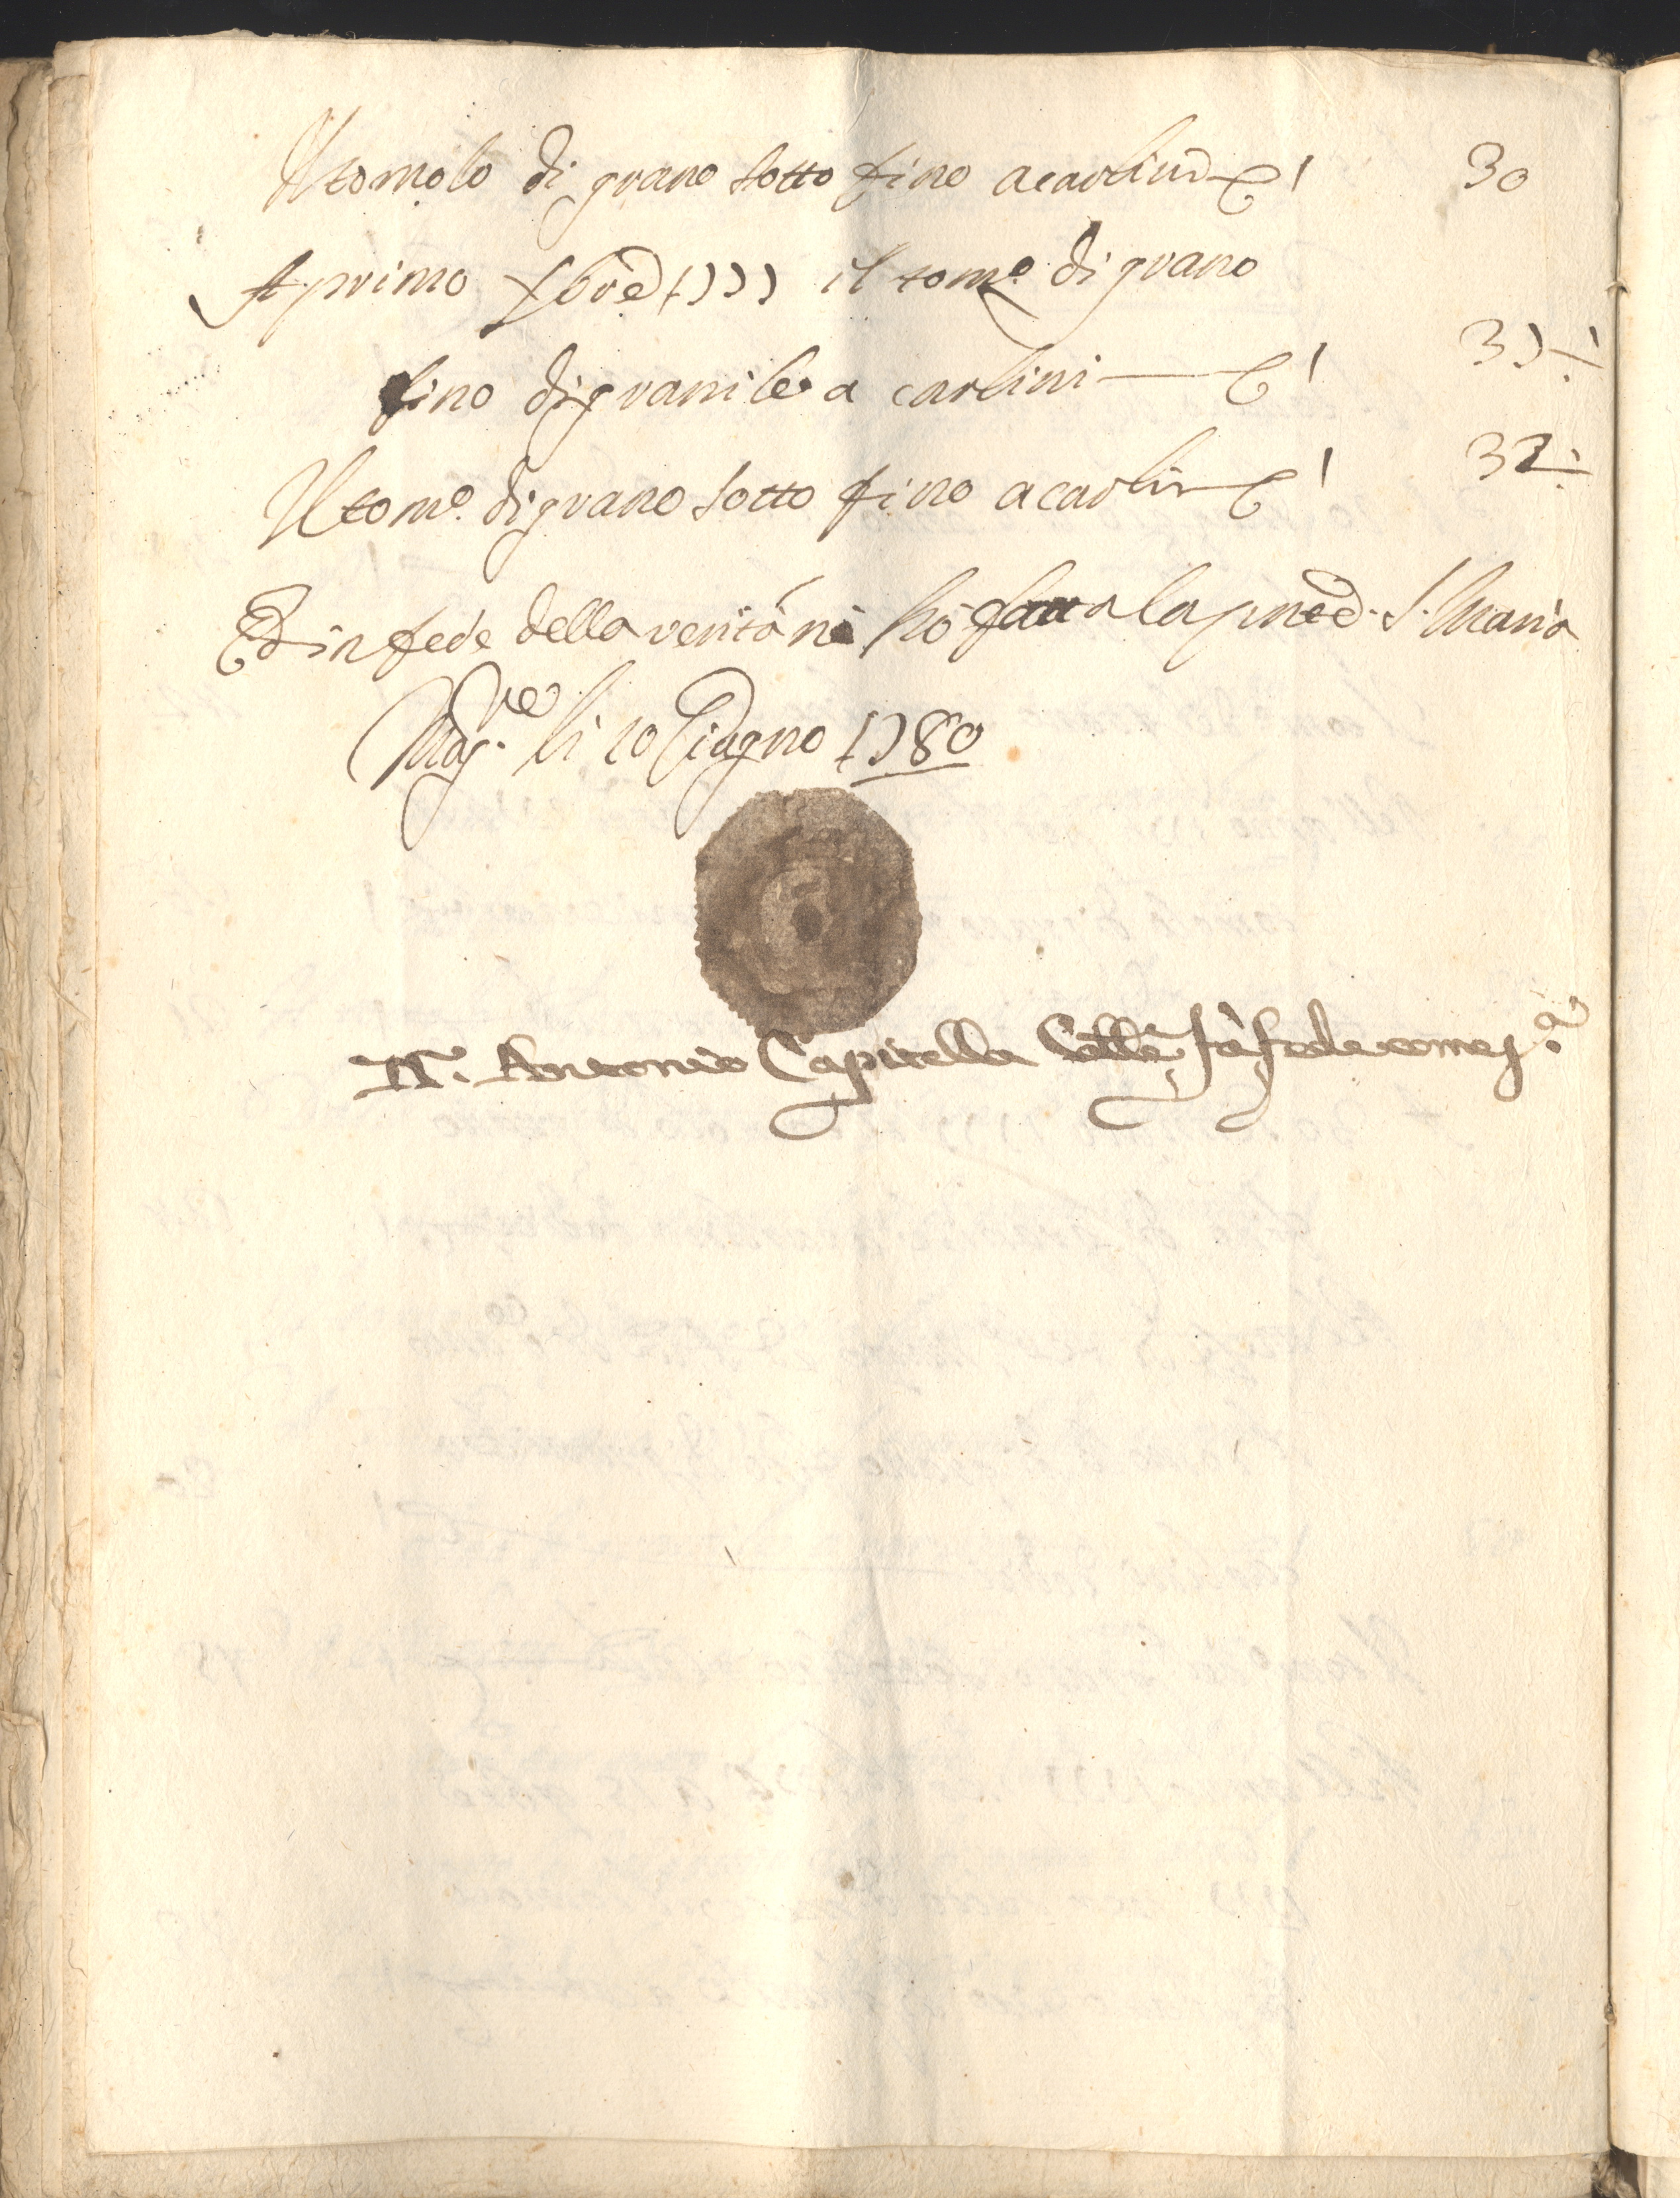 Il tomolo di grano sotto fino a carlini 30
A primo Xbre 1777 il tom.o di grano
fino di granile a carlini 37
Il tom.o di grano sotto fino a carlin 32
Ed in fede della verità ne hò fatta la pnte d. S. Maria
Mag.re li 10 Giugno 1780
Nr. Antonio Capitella Cancell.e fà fede come s.a